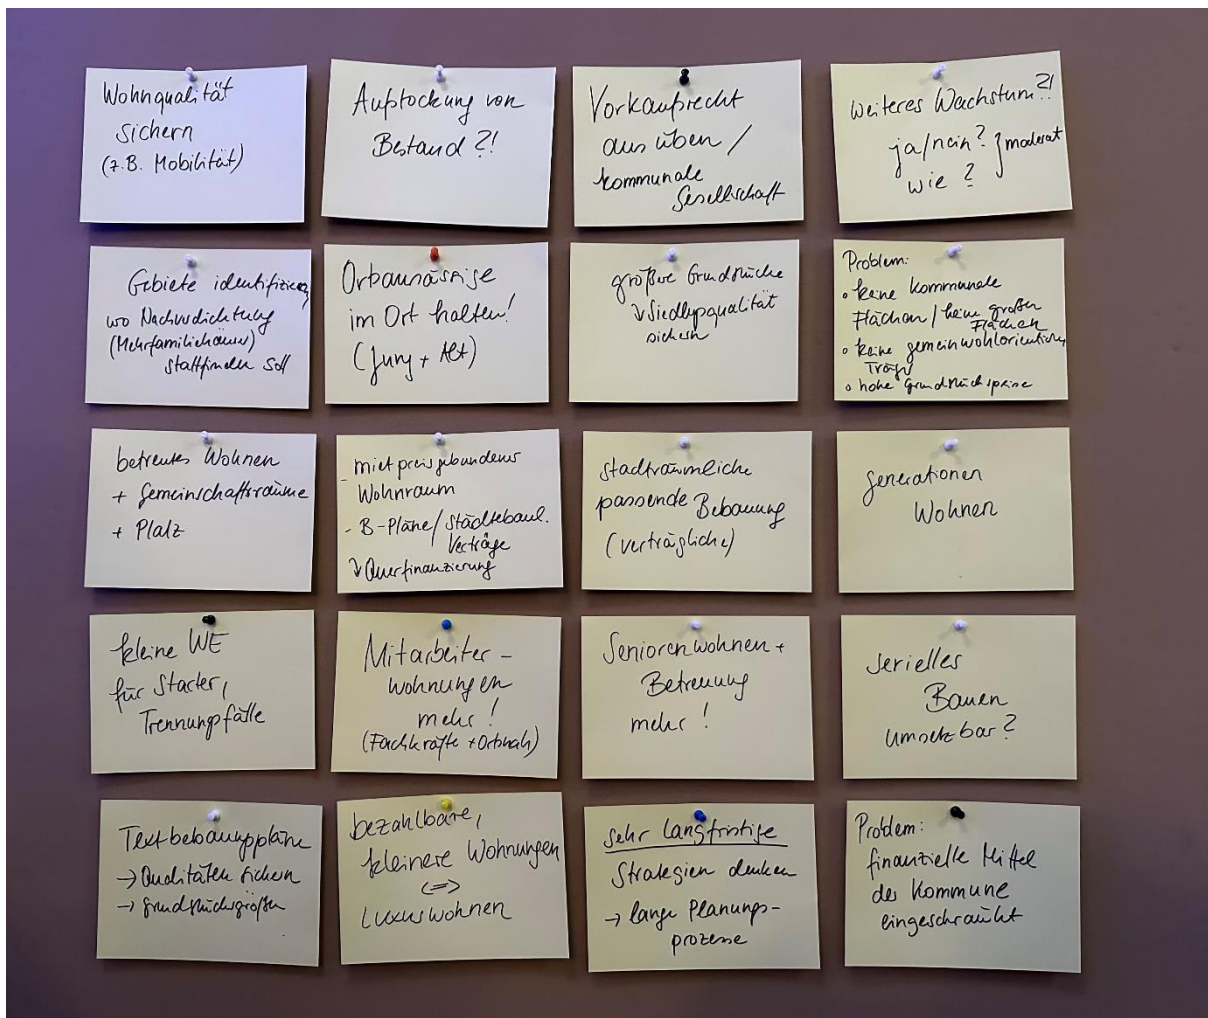 Wohnqualität
sichern
(z.B. Mobilität)
Aufstockung von
Bestand?!
Vorkaufsrecht
ausüben /
kommunale
Gesellschaft
weiteres Wachstum?!
ja/nein? } moderat
wie?
Gebiete identifizieren,
wo Nachverdichtung
(Mehrfamilienhäuser)
stattfinden soll
Ortsansässige
im Ort halten!
(Jung + Alt)
größere Grundstücke
↳ Siedlungsqualität
sichern
Problem:
• keine kommunale
Flächen / keine großen
Flächen
• keine gemeinwohlorientierten
Träger
• hohe Grundstückspreise
betreutes Wohnen
+ Gemeinschaftsräume
+ Platz
- mietpreisgebundener
Wohnraum
- B-Pläne / Städtebaul.
Verträge
↳ Querfinanzierung
stadträumliche
passende Bebauung
(verträgliche)
Generationen
Wohnen
kleine WE
für Starter,
Trennungsfälle
Mitarbeiter-
wohnungen
mehr!
(Fachkräfte + Ortsnah)
Seniorenwohnen +
Betreuung
mehr!
serielles
Bauen
umsetzbar?
Textbebauungspläne
→ Qualitäten sichern
→ Grundstücksgrößen
bezahlbare,
kleinere Wohnungen
<=>
Luxuswohnen
sehr langfristige
Strategien denken
→ lange Planungs-
prozesse
Problem:
finanzielle Mittel
der Kommune
eingeschränkt